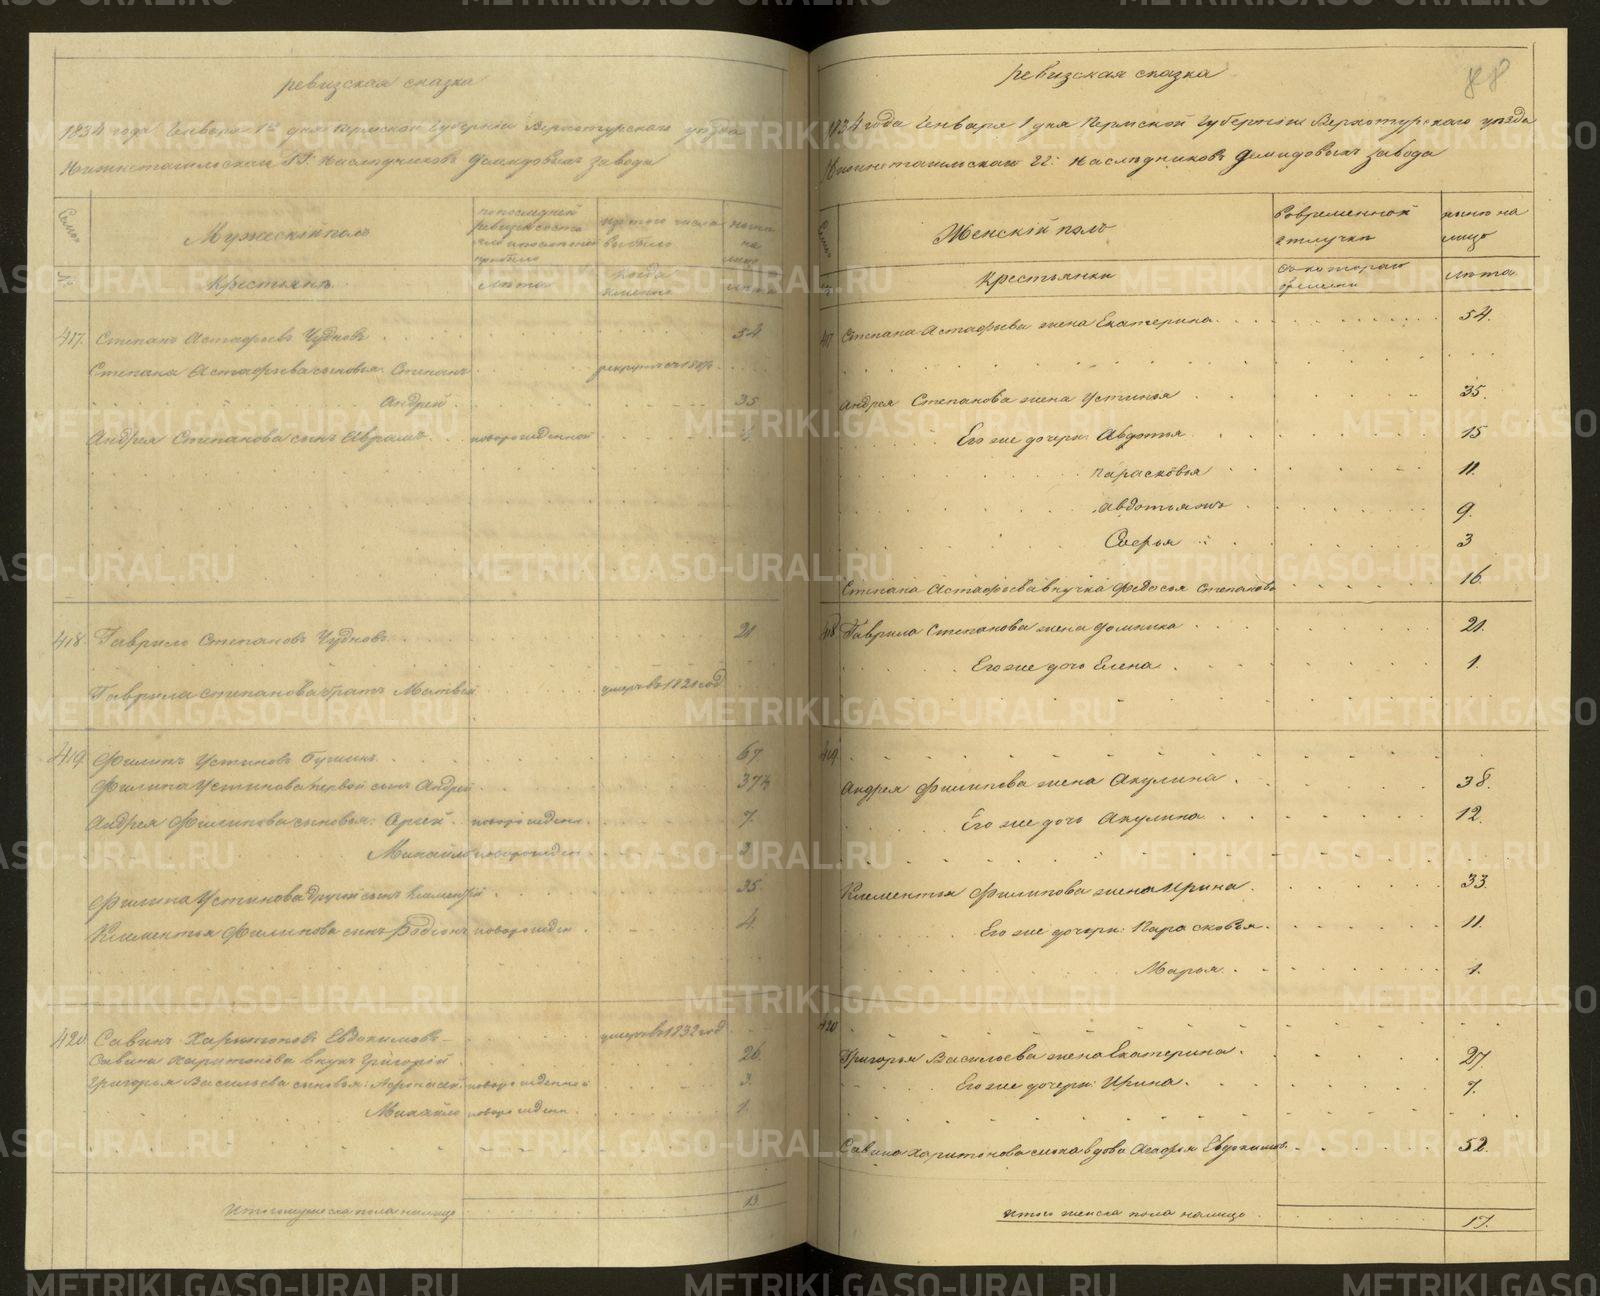 ревизская сказка
1834 года Генваря 1го дня Пермской Губернии Верхотурскаго уезда
Нижнетагильскаго ГГ: Наследниковъ Демидовыхъ завода
Семьи Мужеский полъ по последней ревизии состояло и после того прибыло изъ того числа выбыло ныне на лицо
№ Крестьянъ лета когда именно лета
417. Степанъ Астафьевъ Чудновъ 54
Степана Астафьева сыновья. Степанъ рекрутъ съ
Андрей 35
Андрея Степанова сынъ Аврамъ новорожденной
418. Гаврило Степановъ Чудновъ 21
Гаврила Степанова братъ Матвей умеръ въ 1821 год
419. Филипъ Устиновъ 67
Филипа Устинова первой сынъ Андрей 37
Андрея Филипова сыновья: Сергей новорожден. 7.
Михайло новорожден.
Филипа Устинова другой сынъ Клементей 35.
Клементья Филипова сынъ Родионъ новорожден 4.
420. Савинъ Харитоновъ Евдокимовъ умеръ въ 1832 год
Савина Харитонова внукъ Григорий 26.
Григорья Васильева сыновья: Афонасей новорожденной 3.
Михайло новорожден. 1.
Итого мужеска пола налицо 13.
88
ревизская сказка
1834 года Генваря 1 дня Пермской Губернии Верхотурскаго уезда
Нижнетагильскаго ГГ: Наследниковъ Демидовыхъ завода
Семьи Женский полъ Во временной отлучке ныне на лицо
№ Крестьянки съ котораго времени лета
417 Степана Астафьева жена Екатерина. 54.
Андрея Степанова жена Устинья 35.
Его же дочери: Авдотья 15
Парасковья 11.
Авдотья жъ 9.
Софья 3
Степана Астафьева внучка Федосья Степанова 16
418 Гаврила Степанова жена Домника 21.
Его же дочь Елена 1.
419.
Андрея Филипова жена Акулина 38.
Его же дочь Акулина 12.
Клементья Филипова жена Ирина. 33.
Его же дочери: Парасковья. 11.
Марья. 1.
420
Григорья Васильева жена Екатерина. 27
Его же дочери: Ирина. 7.
Савина Харитонова сноха вдова Агафья Евдокимов. 52.
Итого женска пола налицо 17.
METRIKI.GASO-URAL.RU